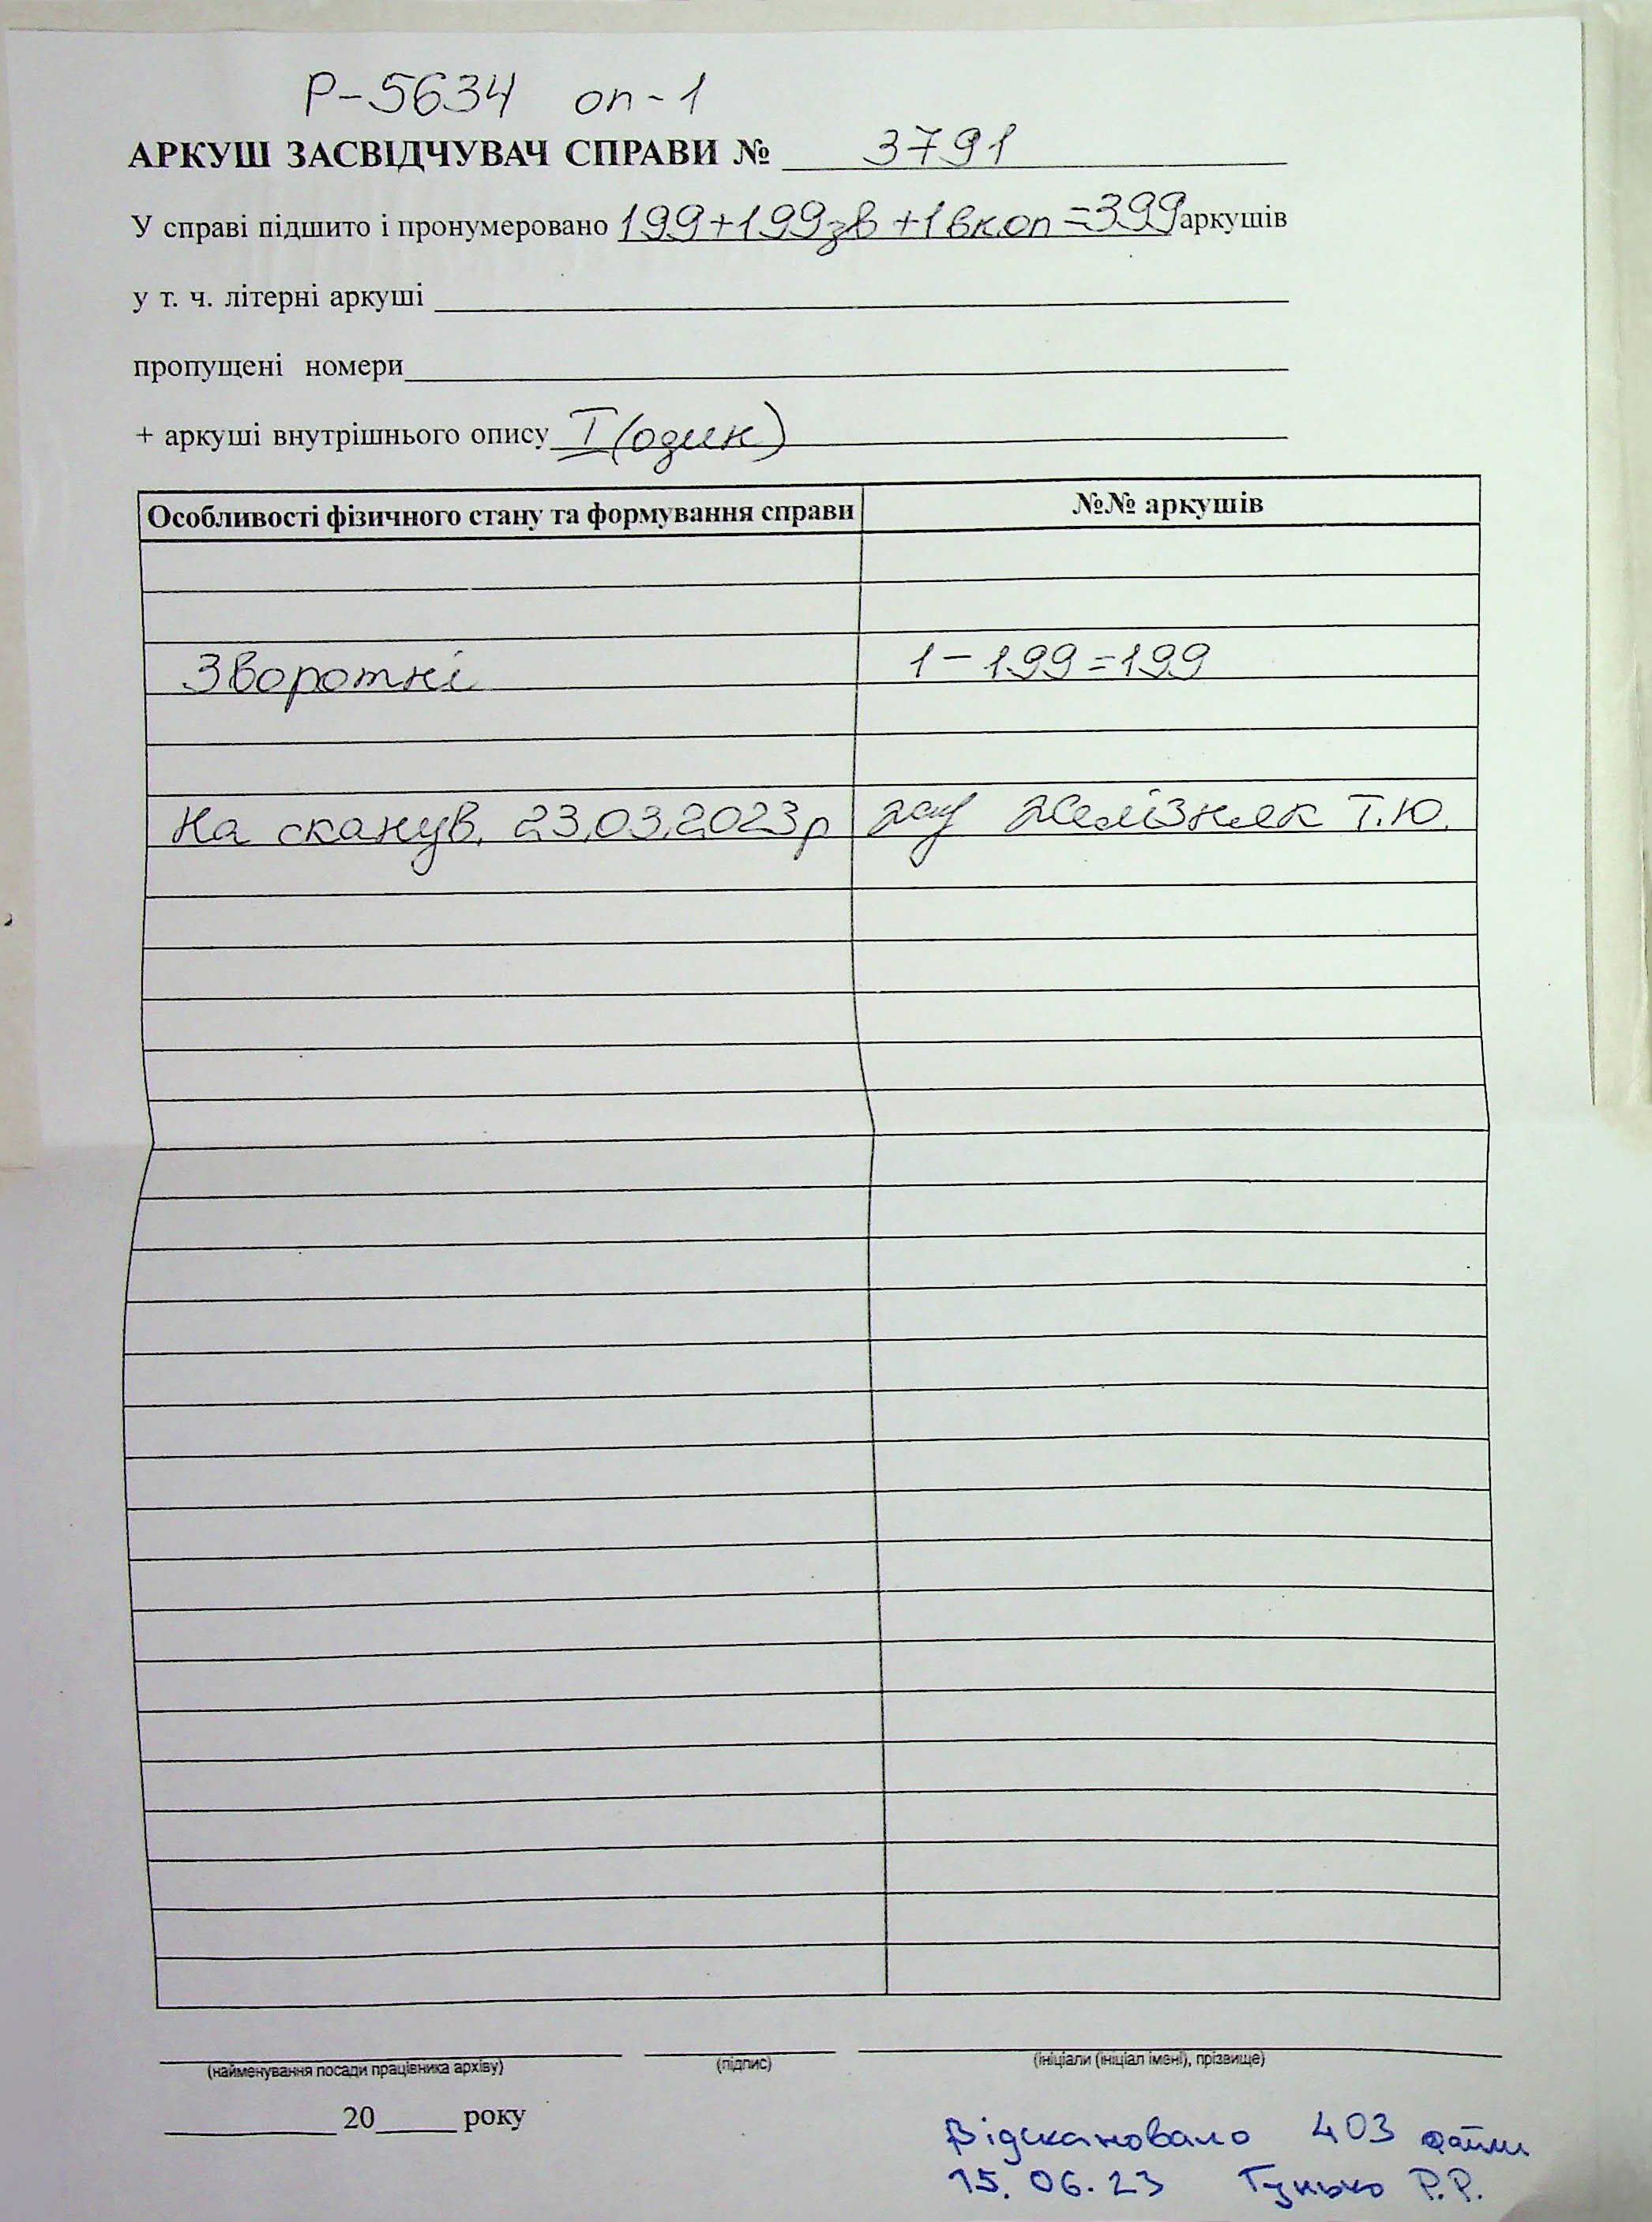 Р-5634 оп-1
АРКУШ ЗАСВІДЧУВАЧ СПРАВИ № 3791
У справі підшито і пронумеровано 199+199зв+1вк.оп=399 аркушів
у т. ч. літерні аркуші
пропущені номери
+ аркуші внутрішнього опису I (один)
Особливості фізичного стану та формування справи №№ аркушів
Зворотні 1-199=199
На сканув. 23.03.2023р Желізняк Т.Ю.
(найменування посади працівника архіву) (підпис) (ініціали (ініціал імені), прізвище)
20 року
Відскановано 403 файли
15.06.23 Гунько Р.Р.